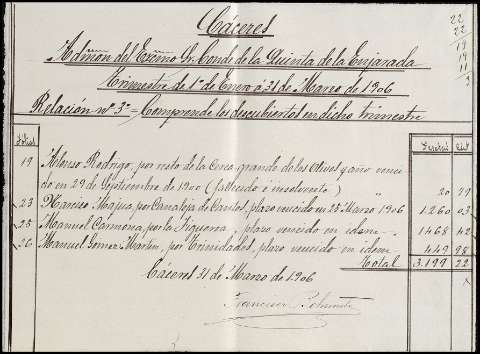 Cáceres
Admon del Excmo Sr. Conde de la Quinta de la Enjarada
Trimestre de 1º de Enero á 31 de Marzo de 1906
Relación nº 3º = Comprende los descubiertos en dicho trimestre
Folios Pesetas Cént
19 Alonso Rodrigo, por resto de la Cerca grande de los Olivos y año venci-
do en 29 de Septiembre de 1900 (fallecido é insolvente) " 20 79
23 Narciso Majua por Canaleja de Cantos, plazo vencido en 25 Marzo 1906 1.260 03
25 Manuel Carmona por la Figuera, plazo vencido en idem 1468 42
26 Manuel Gomez Martin, por Trinidades, plazo vencido en idem 449 98
Total 3.199 22
Cáceres 31 de Marzo de 1906
Francisco
22
22
19
19
11